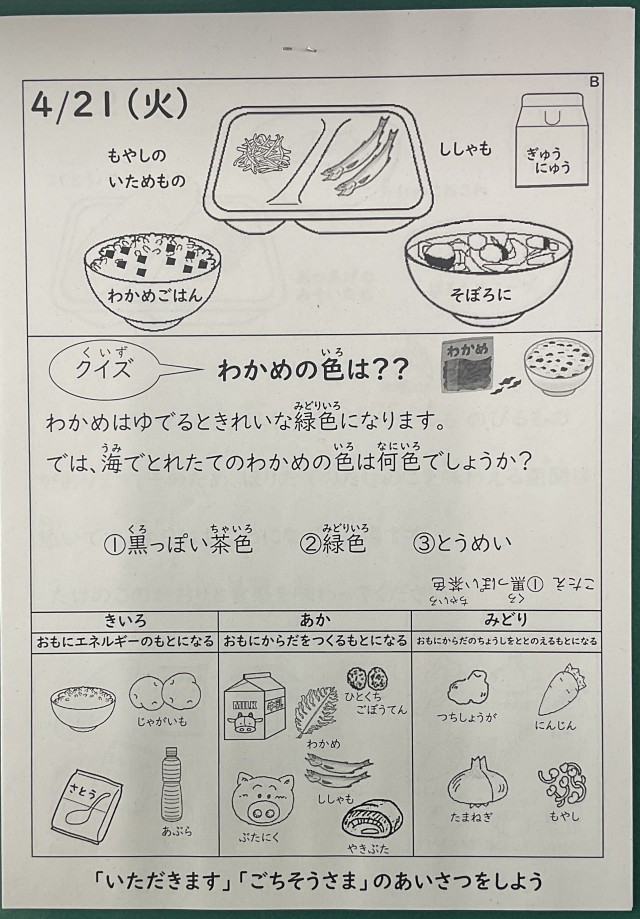 B
4/21(火)
もやしの
いためもの
ししゃも
ぎゅう
にゅう
わかめごはん
そぼろに
くいず
クイズ
いろ
わかめの色は??
わかめ
みどりいろ
わかめはゆでるときれいな緑色になります。
うみ いろ なにいろ
では、海でとれたてのわかめの色は何色でしょうか?
くろ ちゃいろ みどりいろ
①黒っぽい茶色 ②緑色 ③とうめい
くろ ちゃいろ
こたえ ①黒っぽい茶色
きいろ あか みどり
おもにエネルギーのもとになる おもにからだをつくるもとになる おもにからだのちょうしをととのえるもとになる
じゃがいも
さとう
あぶら
MILK
わかめ
ひとくち
ごぼうてん
ししゃも
ぶたにく
やきぶた
つちしょうが
にんじん
たまねぎ
もやし
「いただきます」「ごちそうさま」のあいさつをしよう